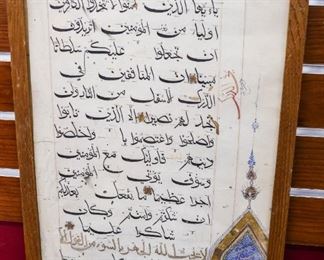 يا ايها الذين امنوا لا تتخذوا الكافرين
اوليا من دون المومنين اتريدون
ان تجعلوا عليكم سلطانا
مبينا ان المنافقين في
الدرك الاسفل من النار ولن
تجد لهم نصيرا الا الذين تابوا
واصلحوا واعتصموا واخلصوا
دينهم فاوليك مع المومنين
وسوف يوتي المومنين
اجرا عظيما ما يفعل بعذابكم
ان شكرتم وامنتم وكان
شاكرا عليما
لا يحب الله الجهر بالسوء من القول